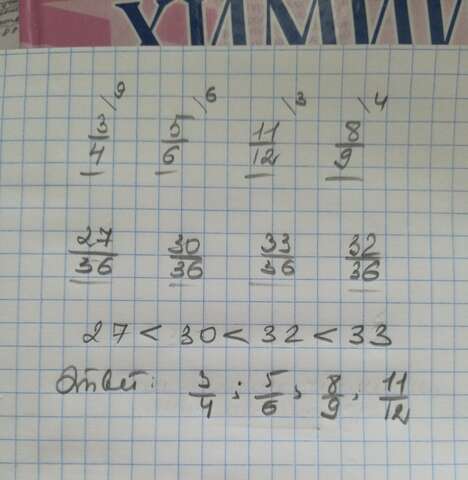 ХИМИИ
3/4 \9 5/6 \6 11/12 \3 8/9 \4
27/36 30/36 33/36 32/36
27 < 30 < 32 < 33
Ответ: 3/4; 5/6; 8/9; 11/12